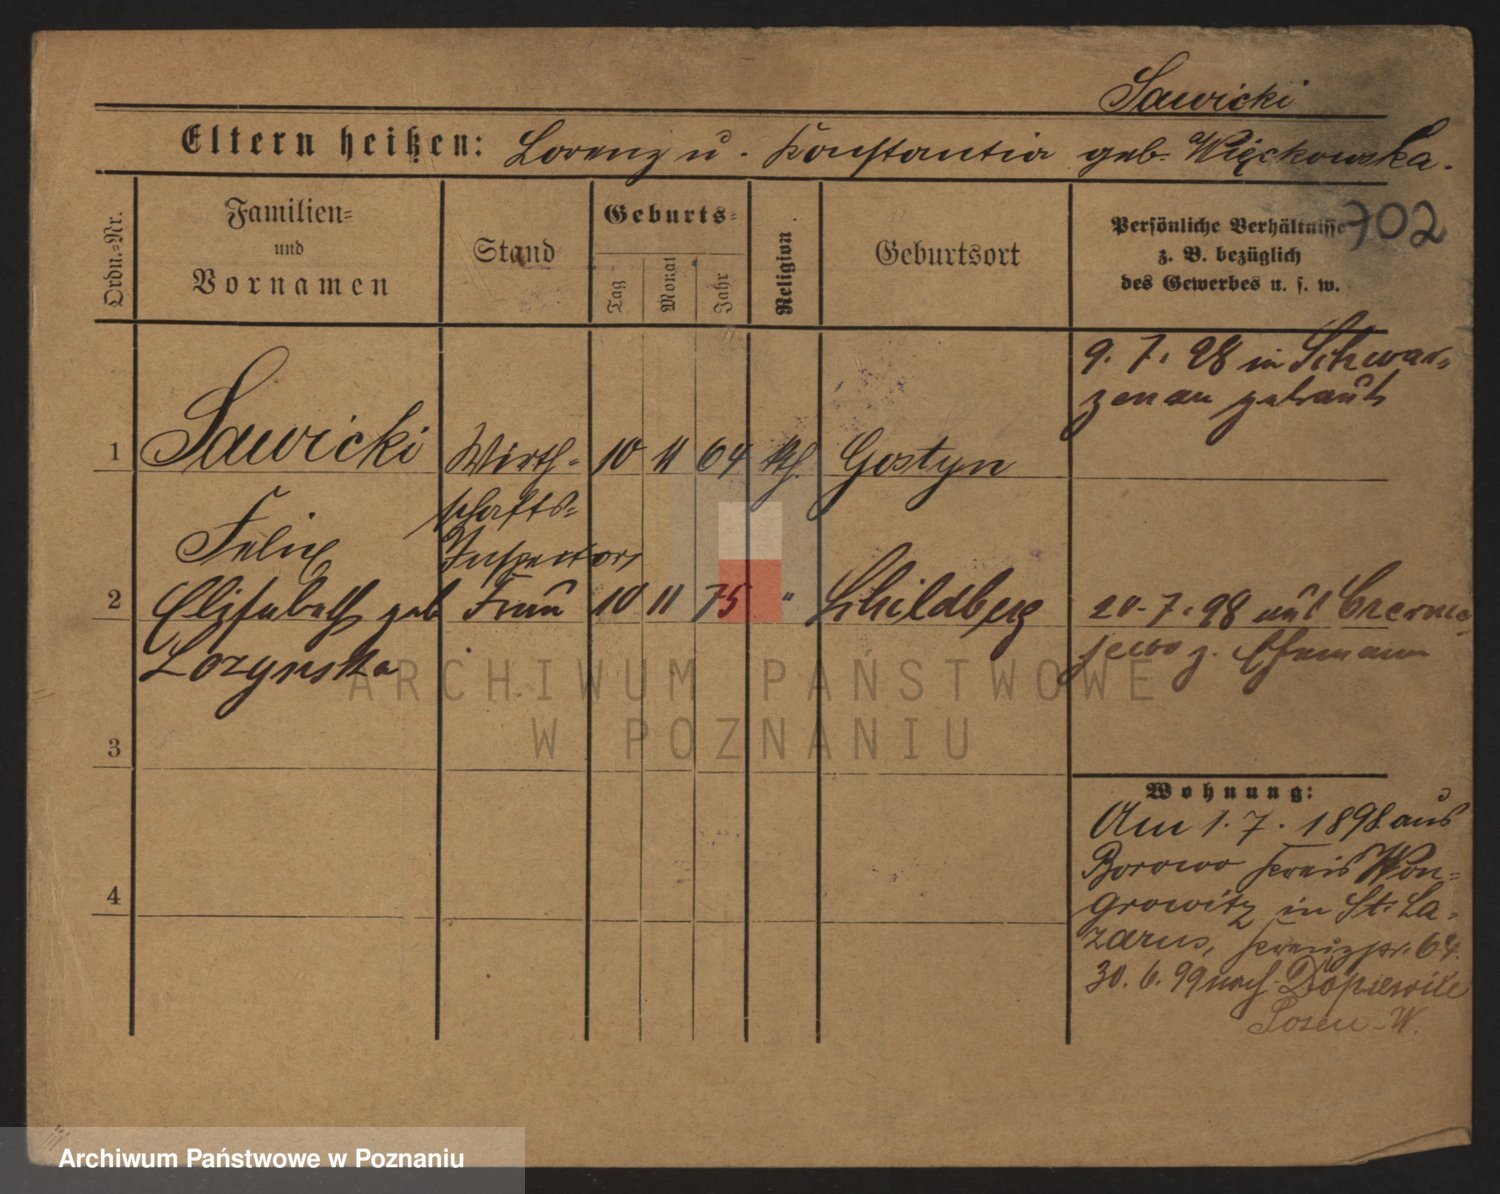 Sawicki
Eltern heißen: Lorenz u. Konstantia geb. Więckowska.
702
Ordn.-Nr.
Familien-
und
Vornamen
Stand
Geburts-
Tag
Monat
Jahr
Religion
Geburtsort
Persönliche Verhältnisse
z. B. bezüglich
des Gewerbes u. s. w.
9. 7. 98 in Schwar-
zenau getraut
1 Sawicki Wirth- 10 11 64 kth. Gostyn
schafts-
Felix Inspector
2 Elisabeth geb Frau 10 11 75 " Schildberg
Lozynska
20.7.98 aus Czernie-
jewo z. Ehemann
3
4
Wohnung:
Am 1. 7. 1898 aus
Borowo Kreis Won-
growitz in St. La-
zarus, Kreuzstr. 64.
30. 6. 99 nach Dopiewice
Posen-W.
ARCHIWUM PAŃSTWOWE
W POZNANIU
Archiwum Państwowe w Poznaniu